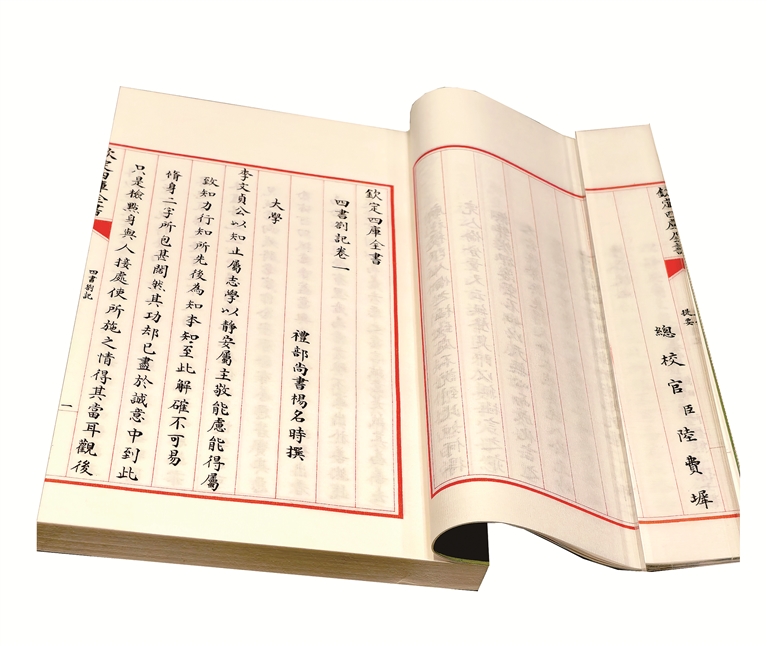 欽定四庫全書
提要
總校官臣陸費墀
欽定四庫全書
四書劄記卷一
禮部尚書楊名時撰
大學
李文貞公以知止屬志學以靜安屬主敬能慮能得屬
致知力行知所先後為知本知至此解確不可易
脩身二字所包甚闊然其功却已盡於誠意中到此
只是檢㸃身與人接處使所施之情得其當耳觀後
欽定四庫全書
四書劄記
一